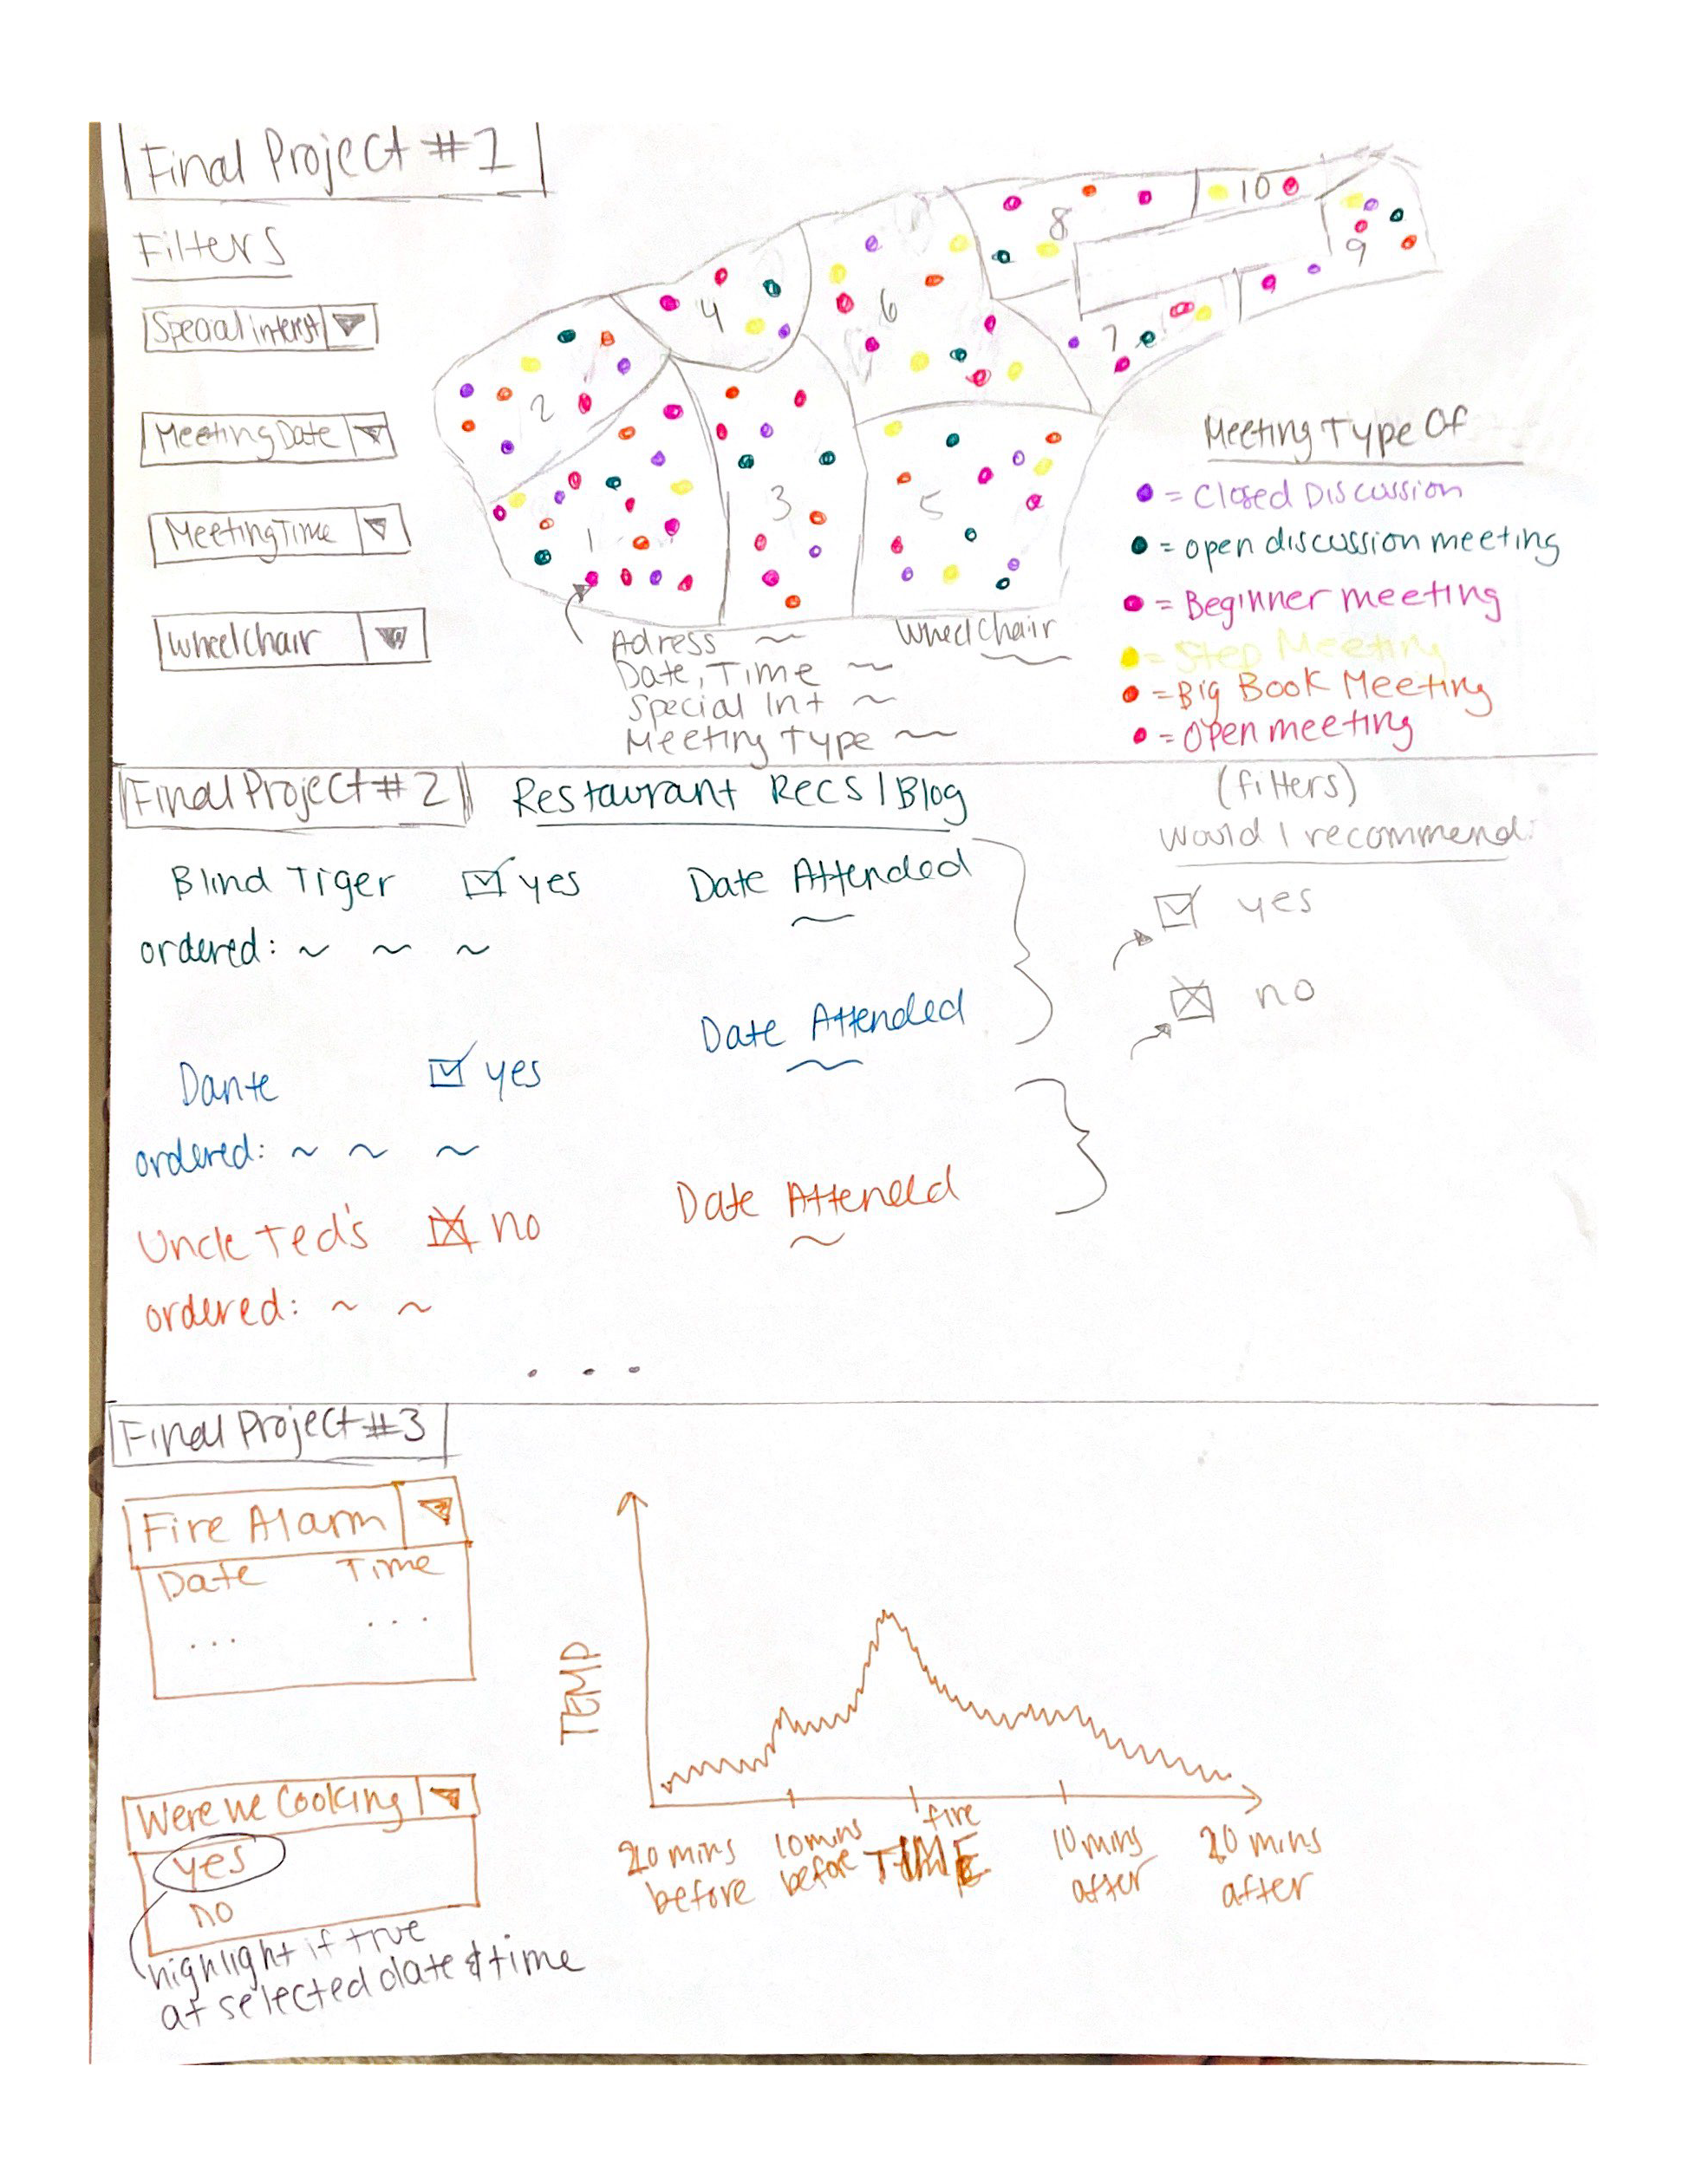 Final Project #1
Filters
Special interst
Meeting Date
Meeting Time
Wheelchair
1
2
3
4
5
6
7
8
9
10
Adress ~
Date, Time ~
Special Int ~
Meeting Type ~
Wheelchair
Meeting Type Of
= Closed Discussion
= open discussion meeting
= Beginner meeting
= Step Meeting
= Big Book Meeting
= Open meeting
Final Project # 2
Restaurant Recs | Blog
(filters)
Would I recommend:
yes
no
Blind Tiger yes Date Attended
ordered: ~ ~ ~
Dante yes Date Attended
ordered: ~ ~ ~
Uncle Ted's no Date Attended
ordered: ~ ~
...
Final Project #3
Fire Alarm
Date Time
... ...
Were we Cooking
yes
no
highlight if true
at selected date & time
TEMP
20 mins before
10 mins before
fire
TIME
10 mins after
20 mins after